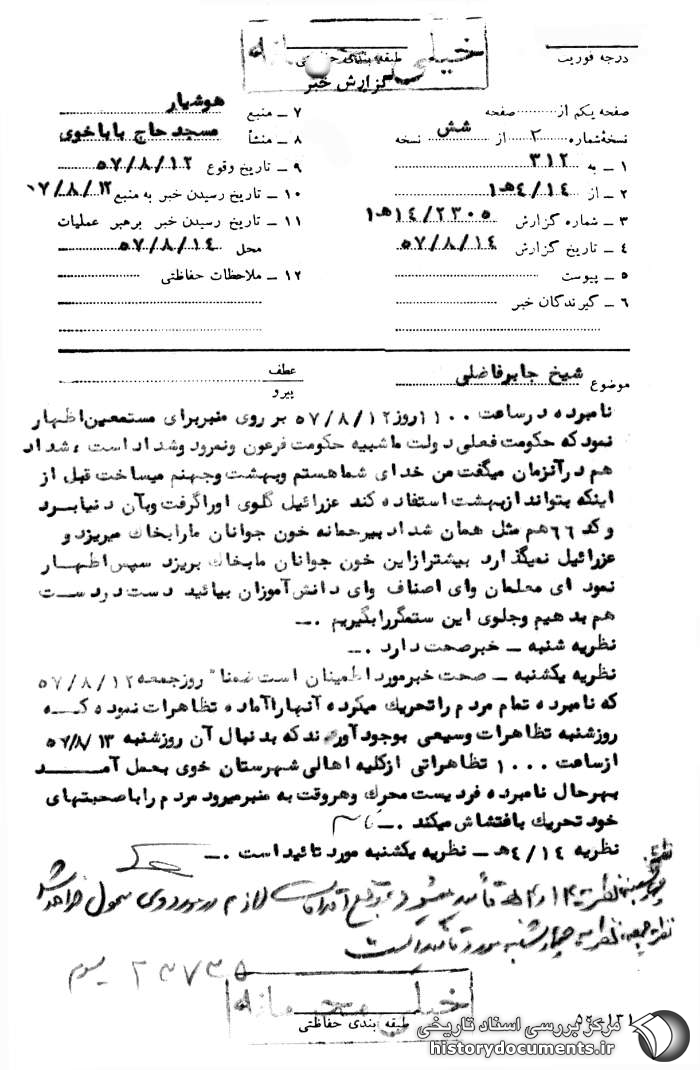 خیلی محرمانه
طبقه بندی حفاظتی
درجه فوریت
گزارش خبر
صفحه یکم از صفحه
نسخهٔ شماره ۲ از شش نسخه
۱ ـ به ۳۱۲
۲ ـ از ۴/۱۴هـ۱
۳ ـ شماره گزارش ۱۴/۲۳۰۵هـ۱
۴ ـ تاریخ گزارش ۵۷/۸/۱۴
۵ ـ پیوست
۶ ـ گیرندگان خبر
۷ ـ منبع هوشیار
۸ ـ منشأ مسجد حاج باباخوی
۹ ـ تاریخ وقوع ۵۷/۸/۱۲
۱۰ ـ تاریخ رسیدن خبر به منبع ۷/۸/۱۲
۱۱ ـ تاریخ رسیدن خبر برهبر عملیات
محل ۵۷/۸/۱۴
۱۲ ـ ملاحظات حفاظتی
موضوع شیخ جابرفاضلی
عطف
پیرو
نامبرده درساعت ۱۱۰۰روز۵۷/۸/۱۲ بر روی منبربرای مستمعین اظهار
نمودکه حکومت فعلی دولت ماشبیه حکومت فرعون ونمرود وشداد است ، شداد
هم درآنزمان میگفت من خدای شماهستم وبهشت وجهنم میساخت قبل از
اینکه بتواند ازبهشت استفاده کند عزرائیل گلوی اوراگرفت وبآن دنیابرد
و کد ۶۶هم مثل همان شداد بیرحمانه خون جوانان مارابخاک میریزد و
عزرائیل نمیگذارد بیشترازاین خون جوانان مابخاک بریزد سپس اظهار
نمود ای معلمان وای اصناف وای دانش آموزان بیائید دست دردست
هم بدهیم وجلوی این ستمگررابگیریم .ــ
نظریه شنبه ـ خبرصحت دارد .ــ
نظریه یکشنبه ـ صحت خبرمورد اطمینان است ضمنا" روزجمعه۵۷/۸/۱۲
که نامبرده تمام مردم راتحریک میکرده آنهاراآماده تظاهرات نموده که
روزشنبه تظاهرات وسیعی بوجودآورند که بدنبال آن روزشنبه ۵۷/۸/۱۳
ازساعت ۱۰۰۰ تظاهراتی ازکلیه اهالی شهرستان خوی بعمل آمد
بهرحال نامبرده فردیست محرک وهروقت به منبرمیرود مردم راباصحبتهای
خود تحریک باغتشاش میکند .ــ
نظریه ۴/۱۴هـ ـ نظریه یکشنبه مورد تائید است .ــ
نظریه چهارشنبه نظریه ۱۴ هـ تأیید میشود
نظریه جمعه نظریه چهارشنبه مورد تأیید است
۲۳۷۳۵
خیلی محرمانه
طبقه بندی حفاظتی
مرکز بررسی اسناد تاریخی
historydocuments.ir